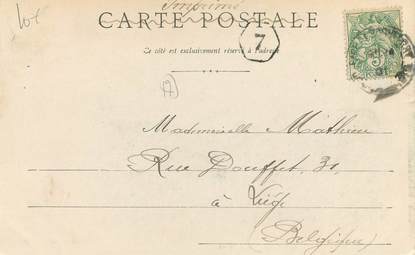 Imprimé
CARTE POSTALE
Ce côté est exclusivement réservé à l'adresse
7
5
Mademoiselle Mathieu
Rue Douffet, 31,
à Liége
(Belgique)